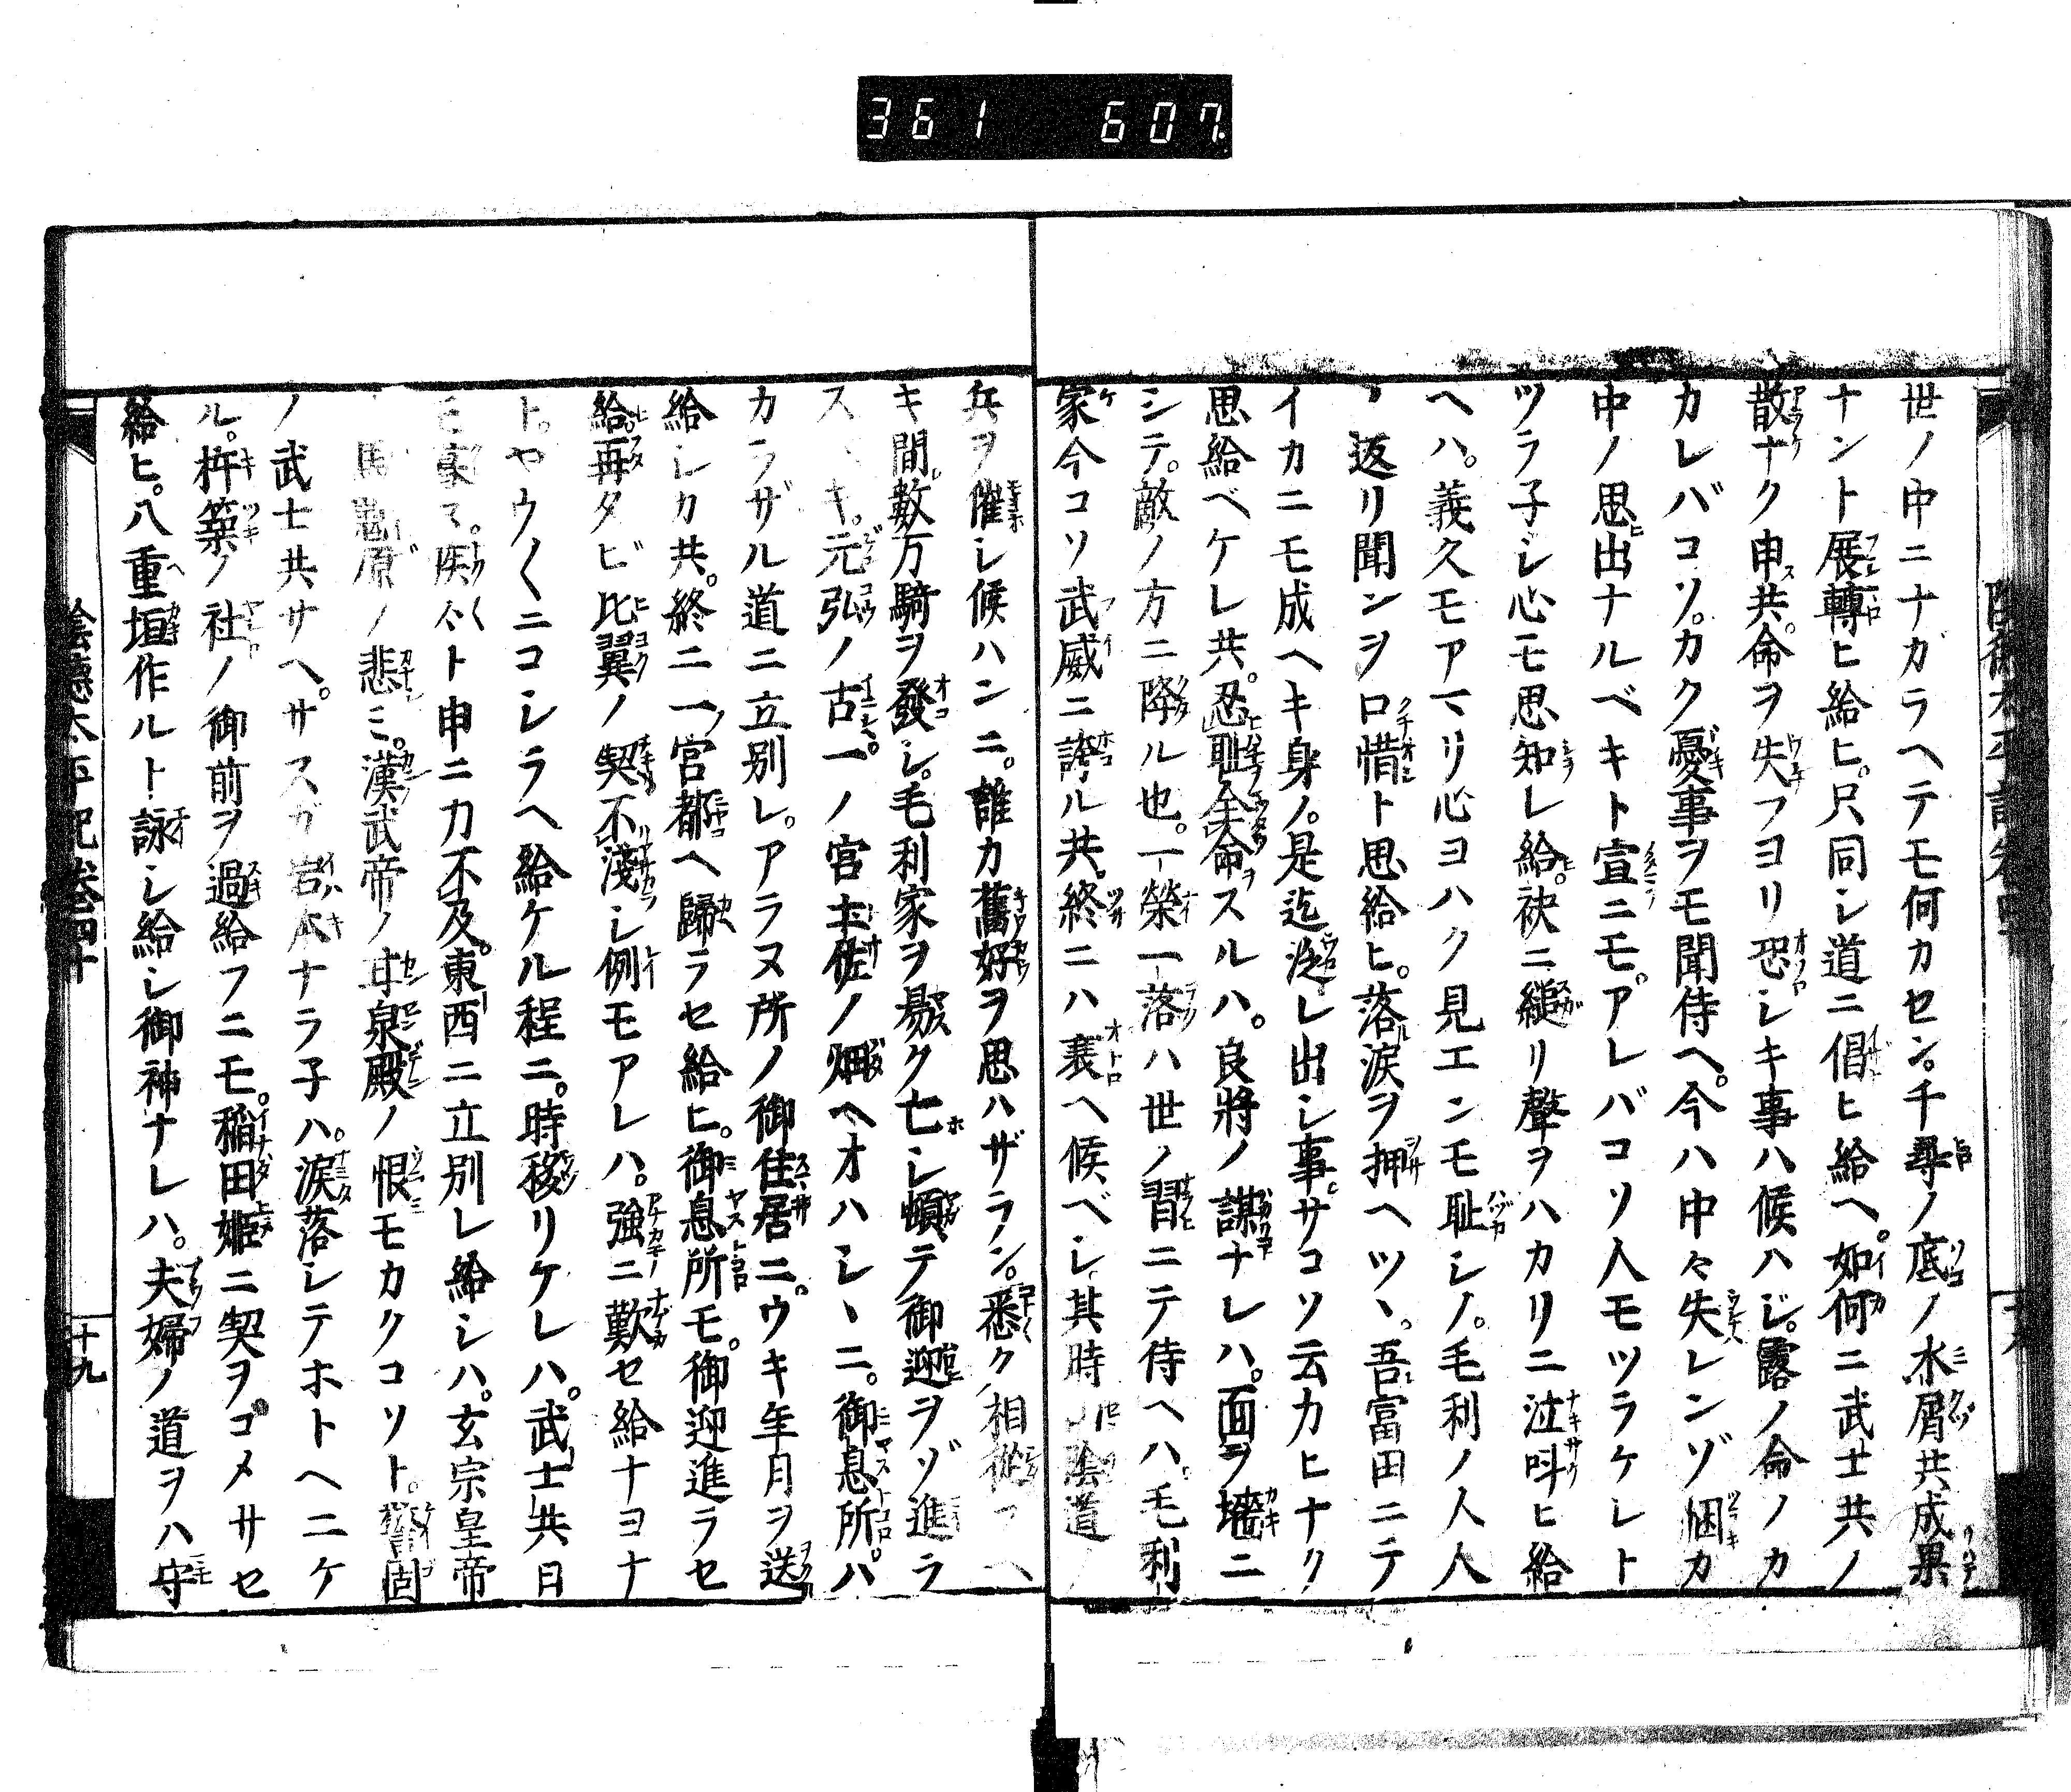 361 607
世ノ中ニナガラヘテモ何カセン。千尋ノ底ノ水屑共成果
ナント展轉ヒ給ヒ。只同シ道ニ倡ヒ給ヘ。如何ニ武士共ノ
散ナク申共。命ヲ失フヨリ恐シキ事ハ候ハジ。露ノ命ノカ
カレバコソ。カク憂事ヲモ聞侍ヘ。今ハ中々失レンゾ悃カ
中ノ思出ナルベキト宣ニモ。アレバコソ人モツラケレト
ツラ子シ心モ思知レ給。袂ニ縋リ聲ヲハカリニ泣呌ヒ給
ヘハ。義久モアマリ心ヨハク見エンモ恥シノ。毛利ノ人人
ヽ返リ聞ンヲ口惜ト思給ヒ。落涙ヲ押ヘツヽ。吾富田ニテ
イカニモ成ヘキ身ノ。是迄泛レ出シ事。サコソ云カヒナク
思給ベケレ共。忍恥全命スルハ。良將ノ謀ナレハ。面ヲ墻ニ
シテ。敵ノ方ニ降ル也。一榮一落ハ世ノ習ニテ侍ヘハ。毛利
家今コソ武威ニ誇ル共。終ニハ衰ヘ候ベシ其時 陰道
兵ヲ催シ候ハンニ。誰カ舊好ヲ思ハザラン。悉ク相從フヘ
キ間。數万騎ヲ發シ。毛利家ヲ易ク亡シ頓テ御迎ヲゾ進ラ
ス キ。元弘ノ古一ノ宮土佐ノ畑ヘオハシヽニ。御息所ハ
カラザル道ニ立別レ。アラヌ所ノ御住居ニ。ウキ年月ヲ送
給シカ共。終ニ一宮都ヘ歸ラセ給ヒ。御息所モ。御迎進ラセ
給。再タビ比翼ノ契不淺シ例モアレハ。強ニ歎セ給ナヨナ
ト。ヤウ〱ニコシラヘ給ケル程ニ。時移リケレハ。武士共日
モ 疾々ト申ニ力不及。東西ニ立別レ給シハ。玄宗皇帝
馬嵬原ノ悲ミ。漢武帝ノ甘泉殿ノ恨モカクコソト。警固
ノ武士共サヘ。サスガ岩木ナラ子ハ。涙落シテホトヘニケ
ル。杵築ノ社ノ御前ヲ過給フニモ。稲田姫ニ契ヲ。コメサセ
給ヒ。八重垣作ルト詠シ給シ御神ナレハ。夫婦ノ道ヲハ守
陰德太平記卷四十
十九